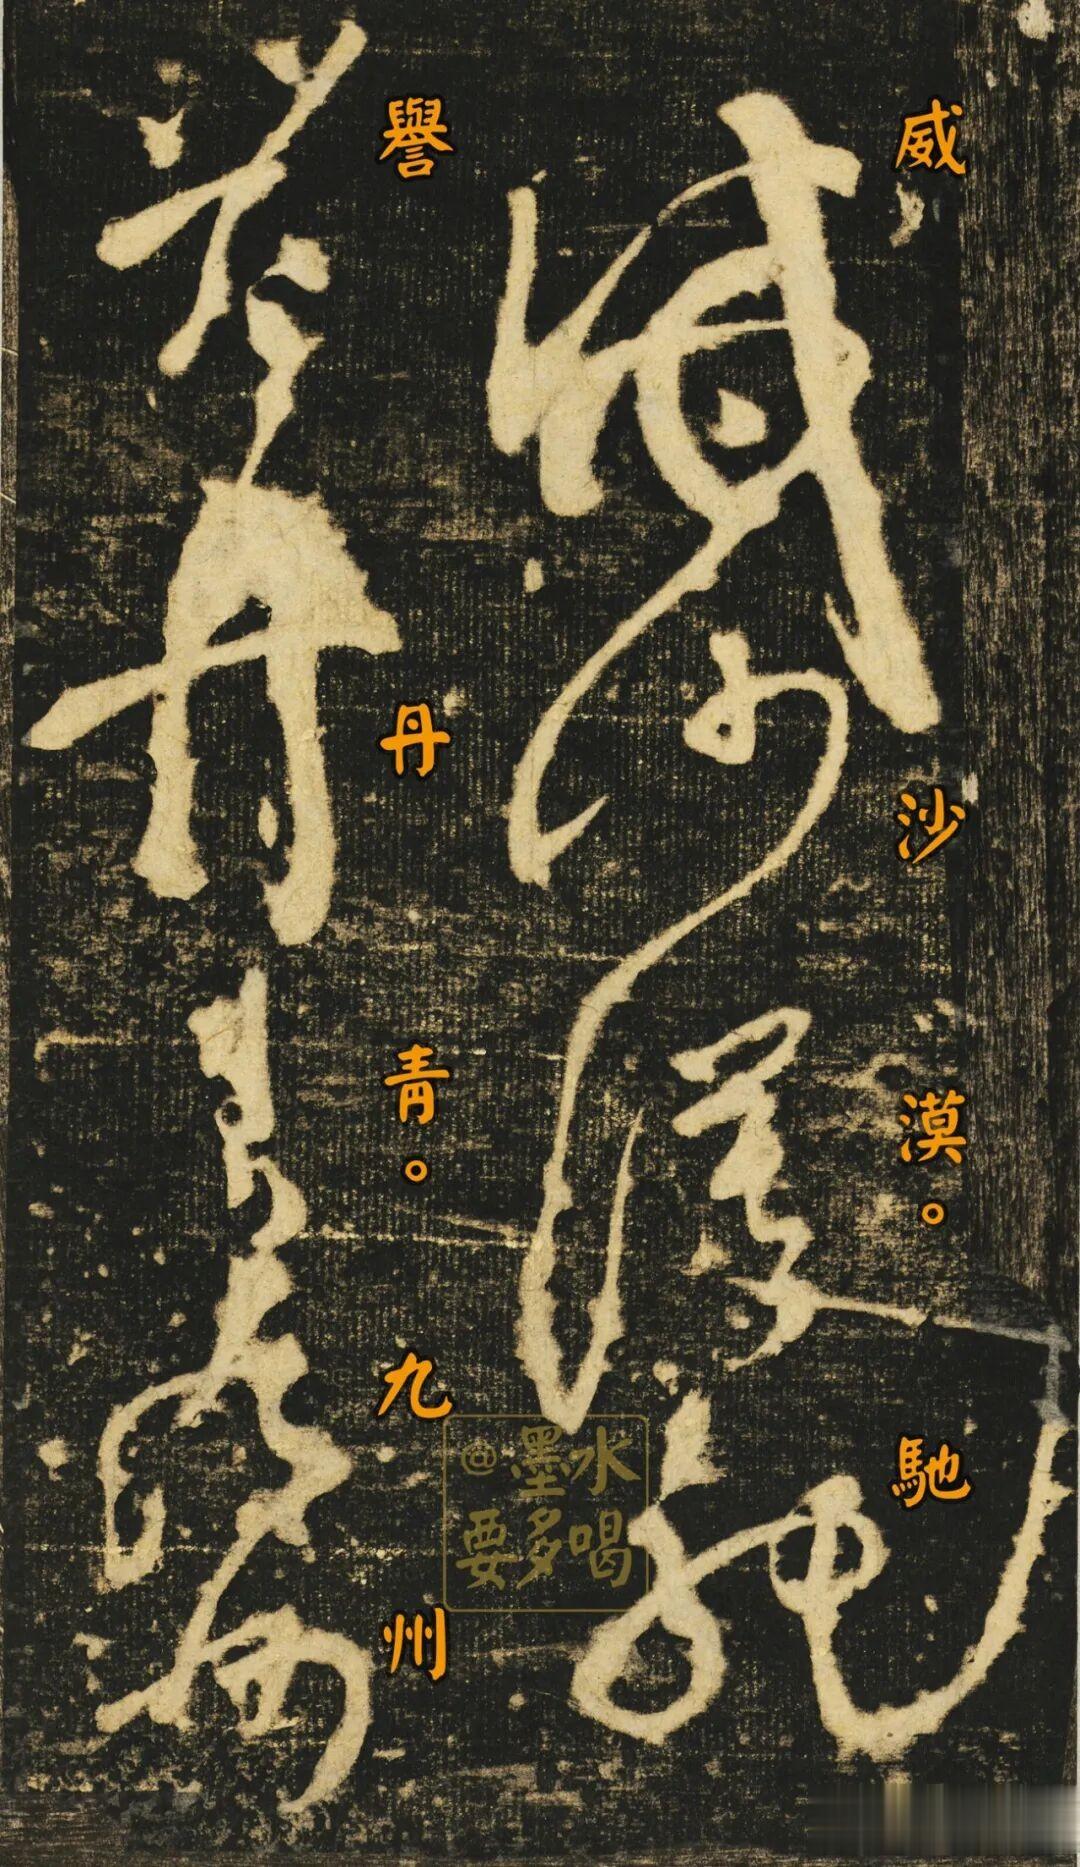 威沙漠。馳
譽丹青。九州
@墨水
要多喝